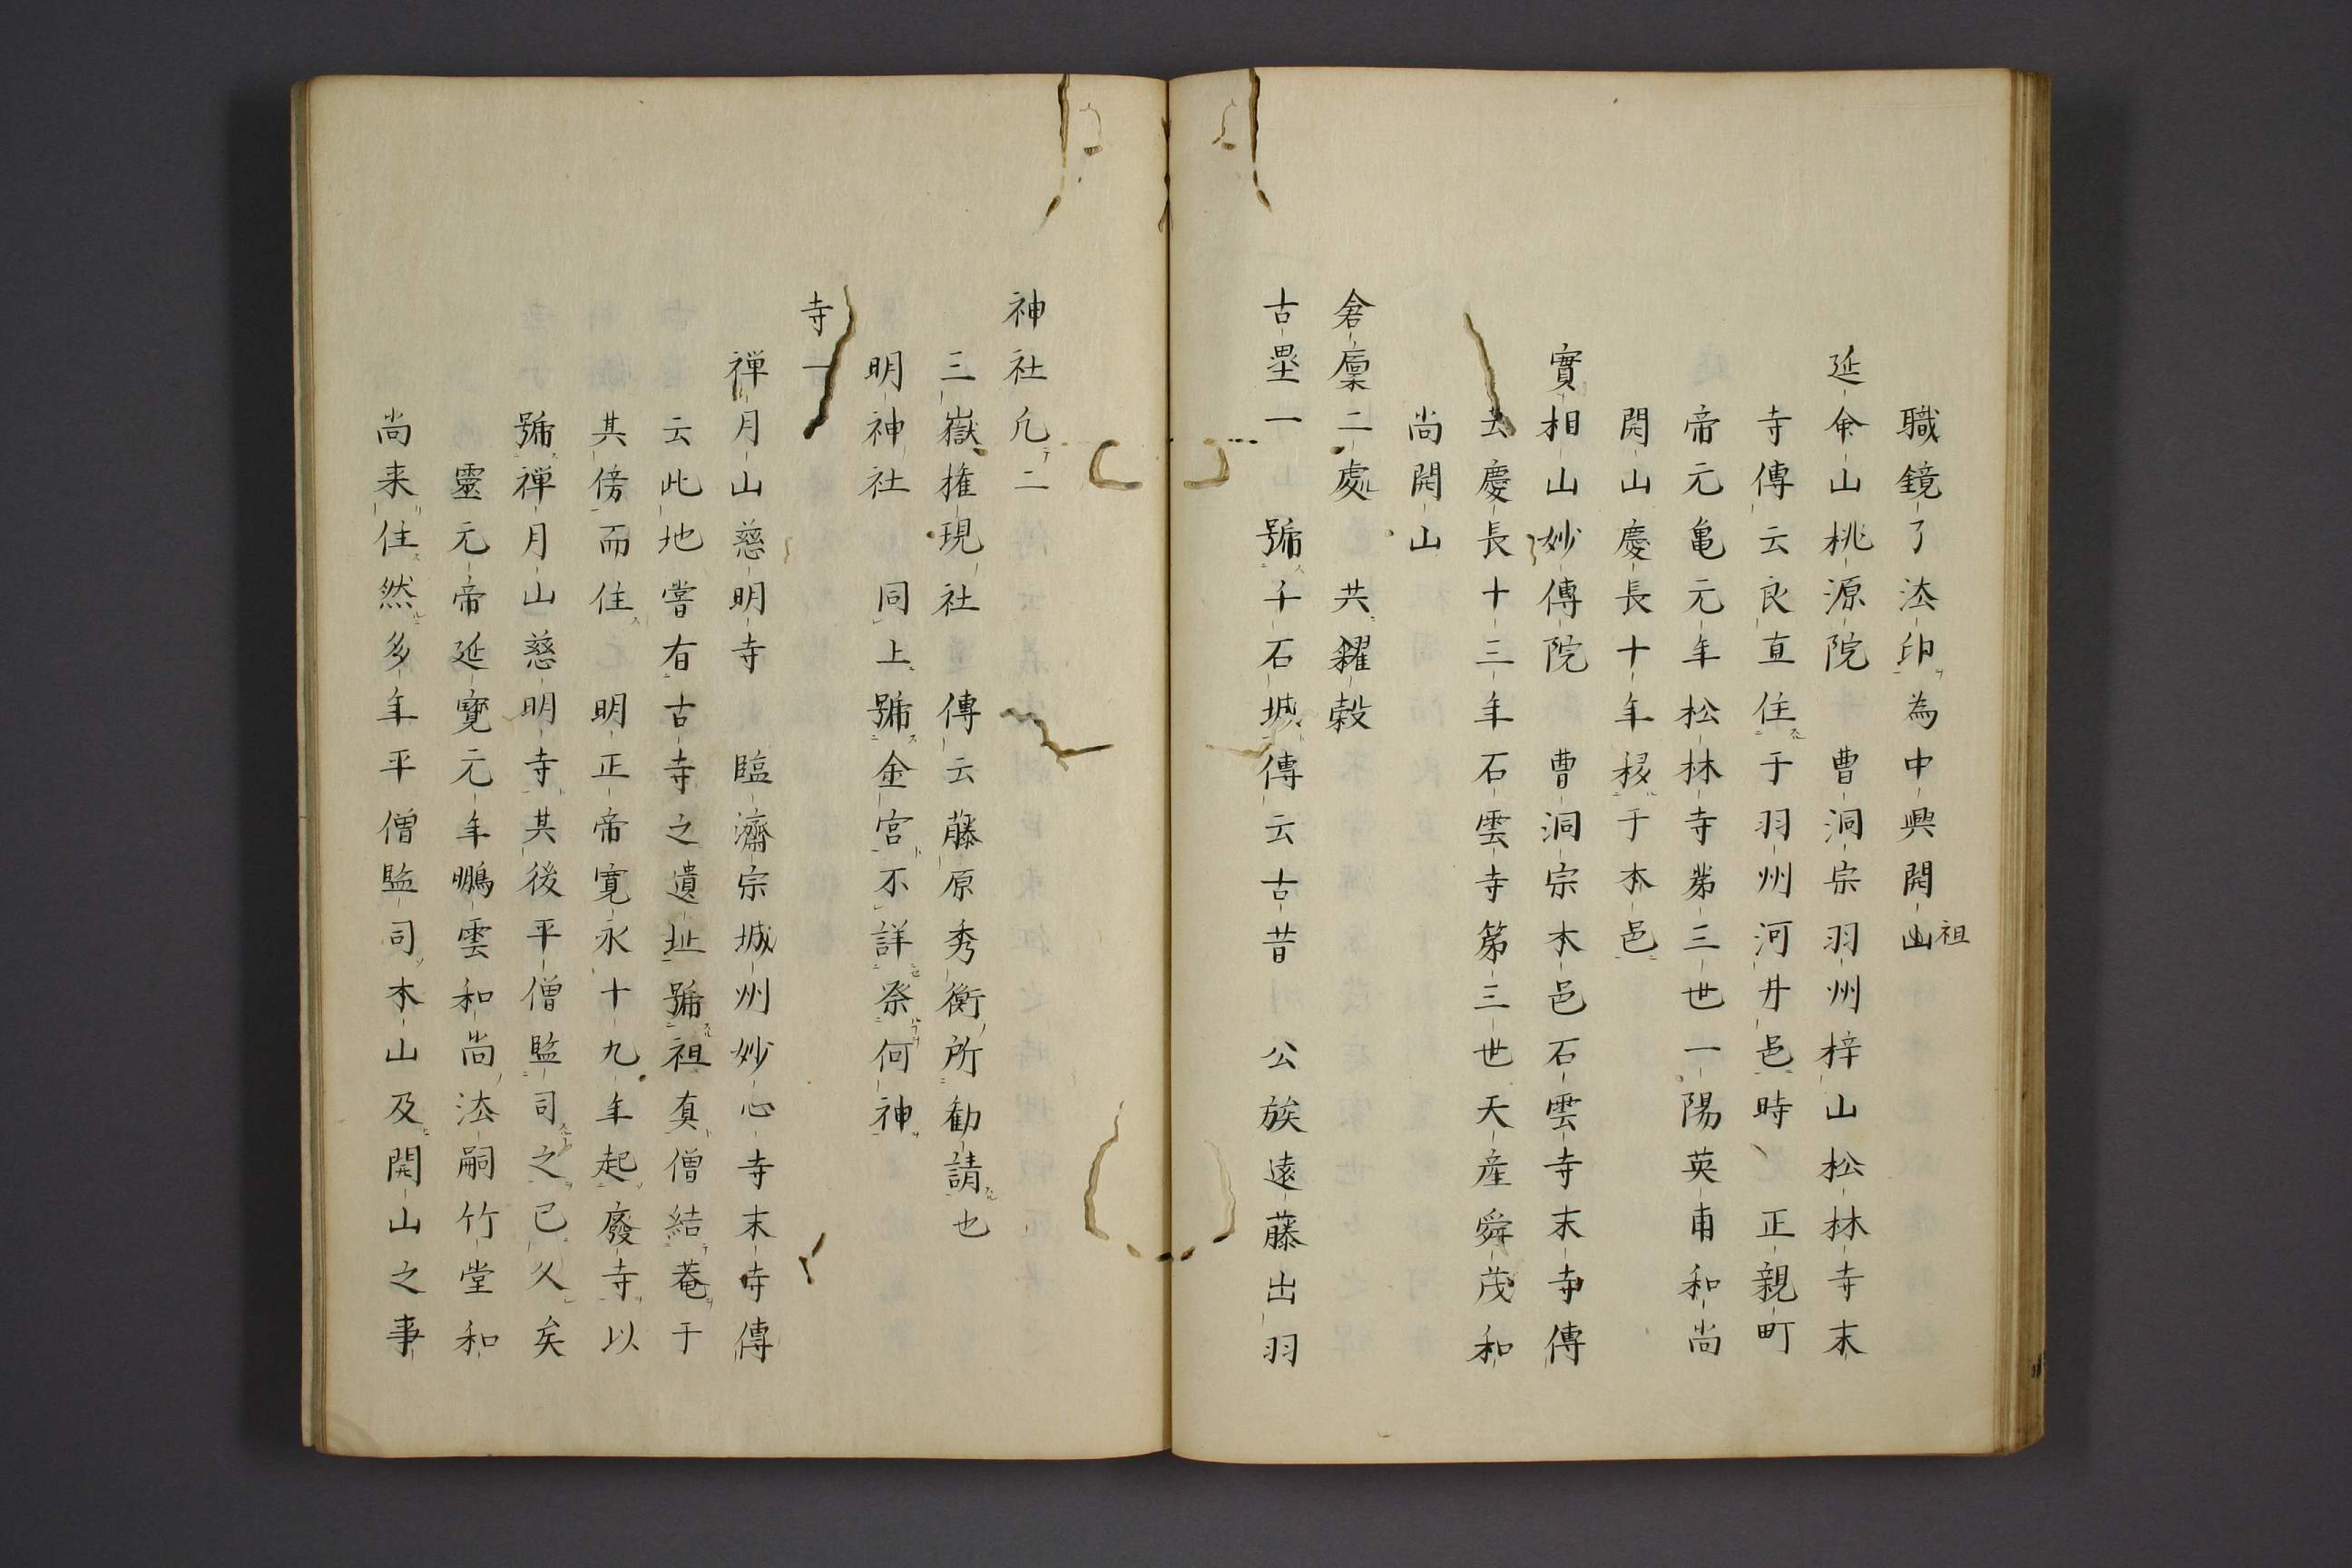 職鏡了法印為中興開山祖
延命山桃源院　曹洞宗羽州梓山松林寺末
寺傳云良直住于羽州河井邑時　正親町
帝元亀元年松林寺第三世一陽英甫和尚
開山慶長十年移于本邑
實相山妙傳院　曹洞宗本邑石雲寺末寺傳
云慶長十三年石雲寺第三世天産舜茂和
尚開山
倉廩二處　共糴穀
古壘一　號子石城傳云古昔　公族遠藤出羽
神社凢二
三嶽権現社　傳云藤原秀衡所勧請也
明神社　同上號金宮不詳祭何神
寺一
禅月山慈明寺　臨濟宗城州妙心寺末寺傳
云此地嘗有古寺之遺址號祖真僧結菴于
其傍而住　明正帝寛永十九年起廢寺以
號禅月山慈明寺其後平僧監司之已久矣
靈元帝延寶元年鵬雲和尚法嗣竹堂和
尚来住然多年平僧監司本山及開山之事